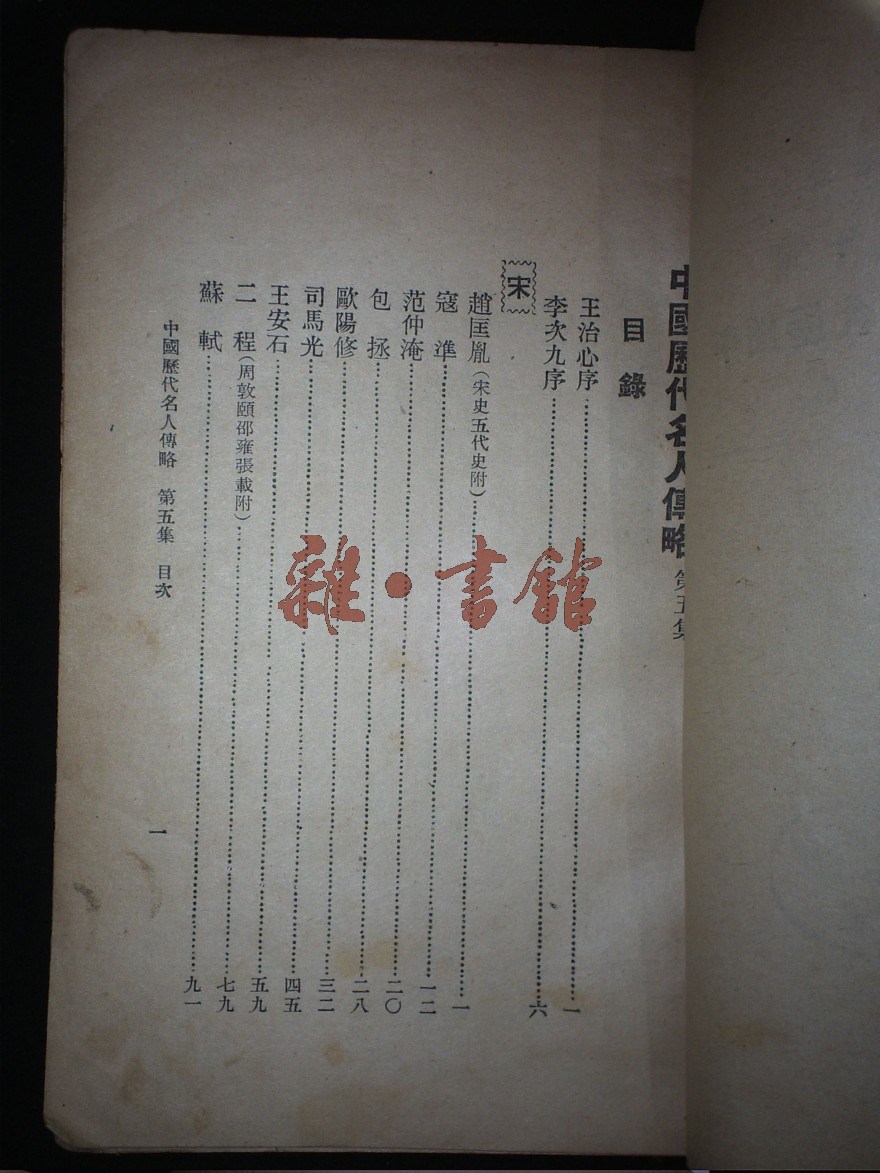 中國歷代名人傳略 第五集
目錄
王治心序……一
李次九序……六
宋
趙匡胤(宋史五代史附)……一
寇準……一二
范仲淹……二〇
包拯……二八
歐陽修……三二
司馬光……四五
王安石……五九
二程(周敦頤邵雍張載附)……七九
蘇軾……九一
中國歷代名人傳略 第五集 目次
一
雜·書館